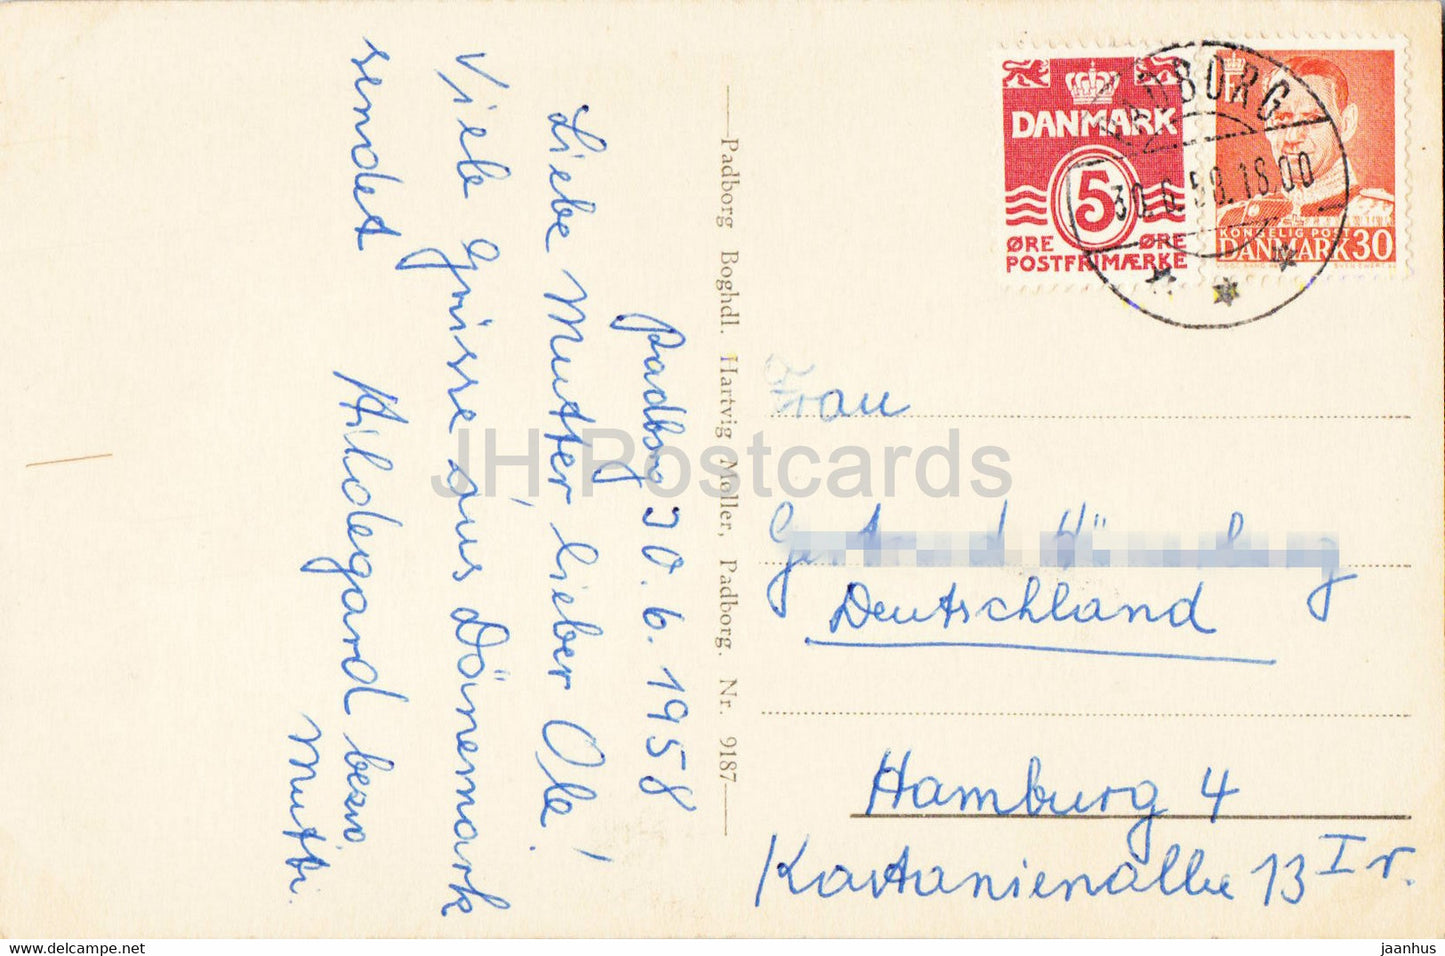 Padborg 30.6.1958
Liebe Mutter, lieber Ole!
Viele Grüsse aus Dänemark
sendet Hildegard bezw
Mutti.
Padborg Boghdl. Hartvig Møller, Padborg. Nr. 9187
DANMARK
5
ØRE ØRE
POSTFRIMÆRKE
KONGELIG POST
DANMARK 30
PADBORG
30.6.58.18.00
Frau
Deutschland
Hamburg 4
Kastanienallee 13 I r.
JH Postcards
www.delcampe.net
jaanhus